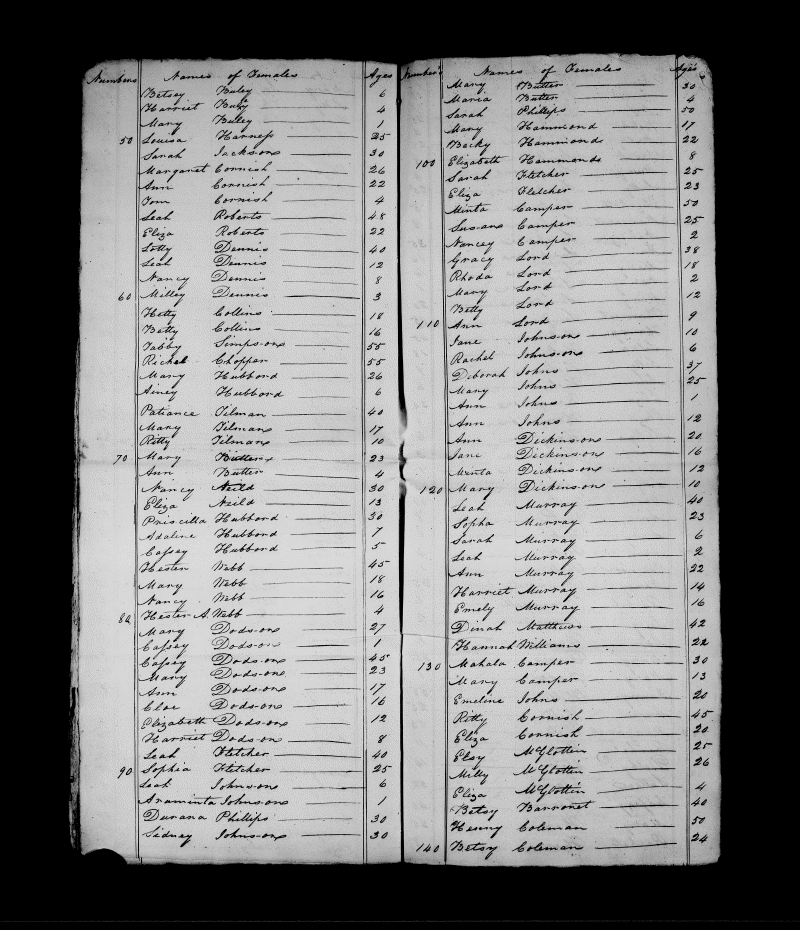 Numbers Names of Females Ages
Betsey Buley 6
Harriet Buley 4
Mary Buley 1
50 Louisa Harness 25
Sarah Jacksone 30
Margaret Cornish 26
Ann Cornish 22
Tom Cornish 4
Leah Roberts 48
Eliza Roberts 22
Lotty Dennis 40
Leah Dennis 12
Nancy Dennis 8
60 Milley Dennis 3
Hetty Collins 18
Betty Collins 16
Tabby Simpsone 55
Richel Chopper 55
Mary Hubbord 26
Ainey Hubbord 6
Patiance Tilman 40
Mary Tilmane 17
Ritty Tilmane 10
70 Mary Butter 23
Ann Butter 4
Nancy Neild 30
Eliza Neild 13
Priscilla Hubbord 30
Adaline Hubbord 7
Cassey Hubbord 5
Hester Webb 45
Mary Webb 18
Nancy Webb 16
Hester A. Webb 4
Mary Dodsone 27
Cassey Dodsone 1
Cassey Dodsone 45
Mary Dodsone 23
Ann Dodsone 17
Cloe Dodsone 16
Elizabeth Dodsone 12
Harriet Dodsone 8
Leah Fletcher 40
90 Sophia Fletcher 25
Leah Johnsone 6
Araminta Johnsone 1
Durana Phillips 30
Sidney Johnsone 30
Numbers Names of Females Ages
Mary Butter 30
Maria Butter 4
Sarah Phillips 50
Mary Hammond 17
Becky Hammonds 22
100 Elizabeth Hammonds 8
Sarah Fletcher 25
Eliza Fletcher 23
Minta Camper 50
Susane Camper 25
Nancey Camper 2
Gracy Lord 38
Rhoda Lord 18
Mary Lord 2
Betty Lord 12
110 Ann Lord 9
Jane Johnsone 10
Rachel Johnsone 6
Deborah Johns 37
Mary Johns 25
Ann Johns 1
Ann Johns 12
Ann Dickinsone 20
Jane Dickinsone 16
Minta Dickinsone 12
120 Mary Dickinsone 10
Leah Murray 40
Sopha Murray 23
Sarah Murray 6
Leah Murray 2
Ann Murray 22
Harriet Murray 14
Emely Murray 16
Dinah Matthews 42
Hannah Williams 22
130 Mahala Camper 30
Mary Camper 13
Emeline Johns 20
Ritty Cornish 45
Eliza Cornish 20
Elsy McGlottin 25
Milly McGlottin 26
Eliza McGlottin 4
Betsy Barronet 40
Henny Coleman 50
140 Betsy Coleman 24